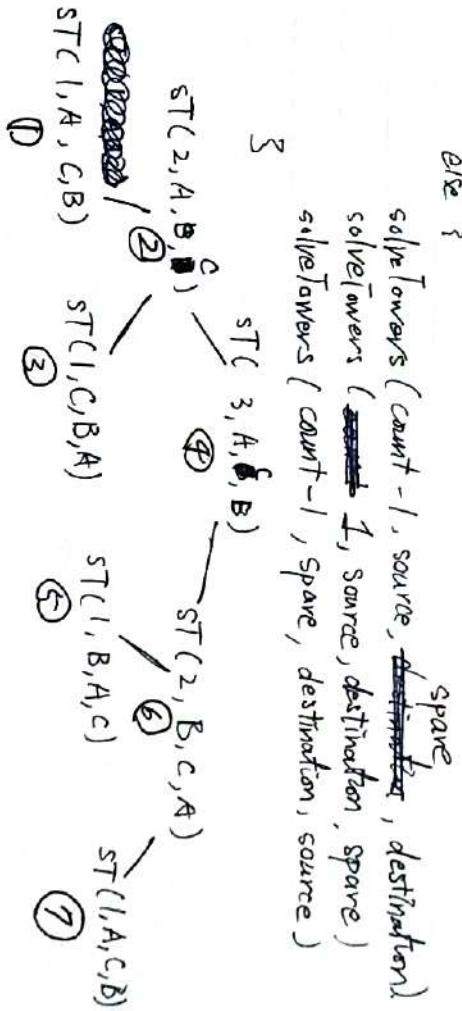 else {
solveTowers (count - 1, source, spare, destination)
solveTowers ( 1, source, destination, spare)
solveTowers (count - 1, spare, destination, source)
}
ST( 3, A, C, B)
④
ST(2, A, B, C)
②
ST(2, B, C, A)
⑥
ST(1, A, C, B)
①
ST(1, C, B, A)
③
ST(1, B, A, C)
⑤
ST(1, A, C, B)
⑦